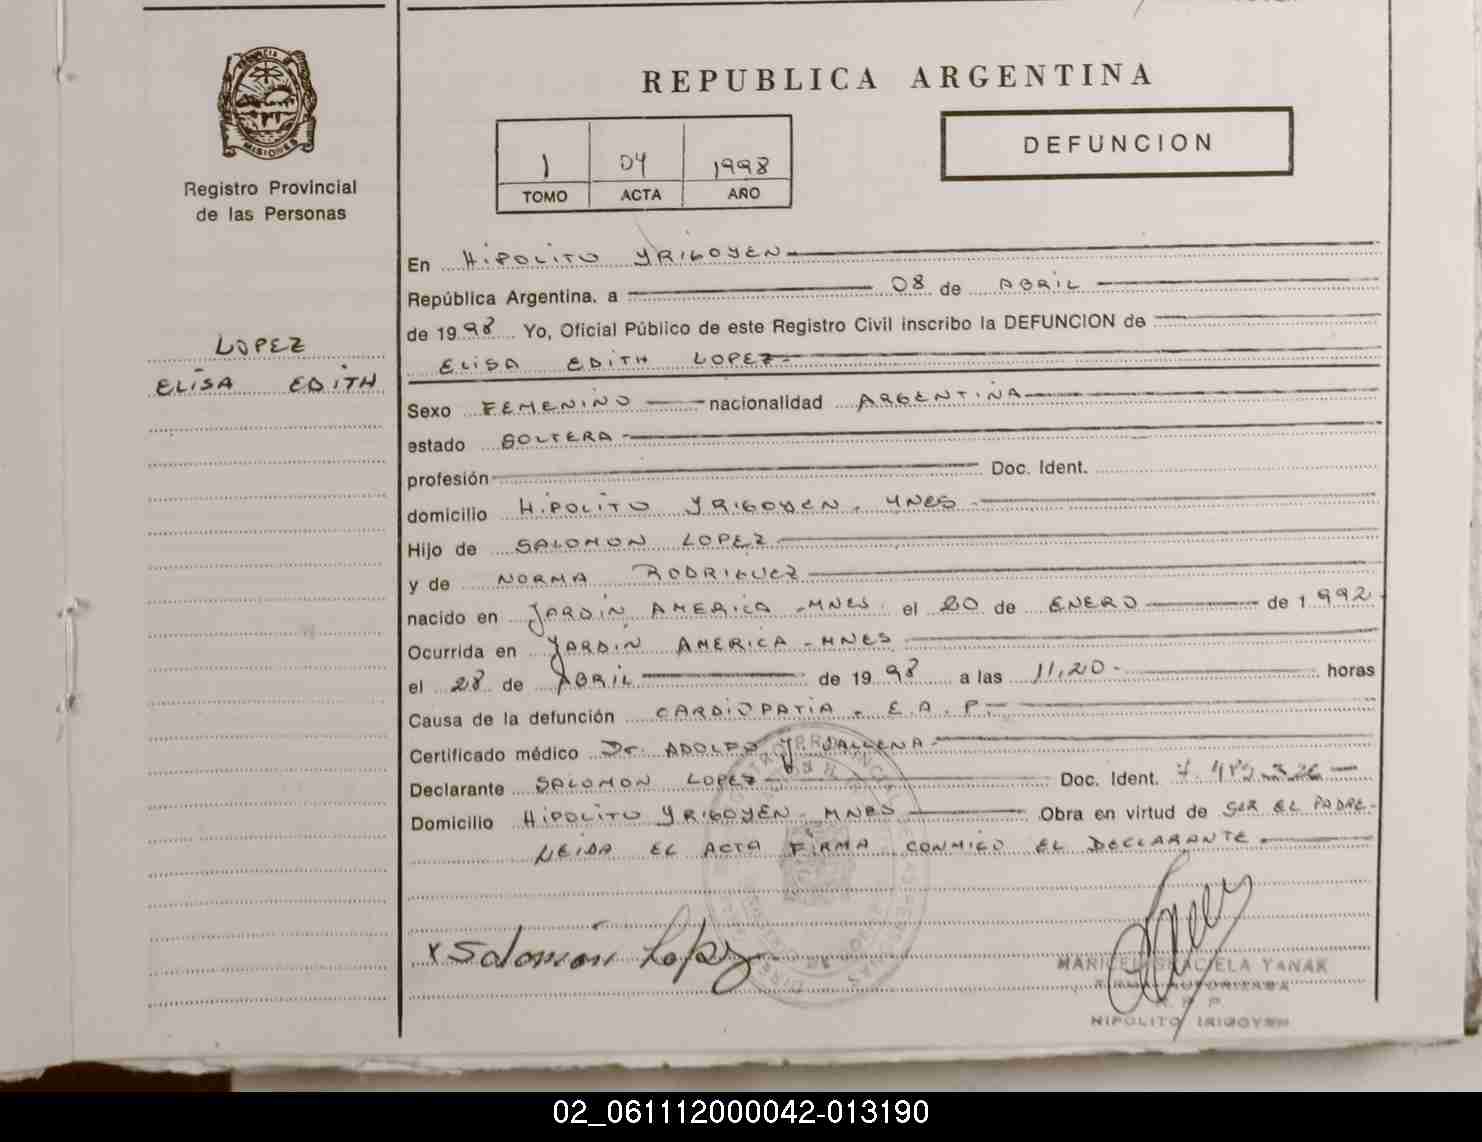 PROVINCIA DE
MISIONES
Registro Provincial
de las Personas
LOPEZ
ELISA EDITH
REPUBLICA ARGENTINA
DEFUNCION
1 04 1998
TOMO ACTA AÑO
En HIPOLITO YRIGOYEN
República Argentina, a 08 de ABRIL
de 1998 Yo, Oficial Público de este Registro Civil inscribo la DEFUNCION de
ELISA EDITH LOPEZ
Sexo FEMENINO nacionalidad ARGENTINA
estado SOLTERA
profesión Doc. Ident.
domicilio HIPOLITO YRIGOYEN. MNES
Hijo de SALOMON LOPEZ
y de NORMA RODRIGUEZ
nacido en JARDIN AMERICA - MNES. el 20 de ENERO de 1992
Ocurrida en JARDIN AMERICA - MNES
el 28 de ABRIL de 1998 a las 11,20 horas
Causa de la defunción CARDIOPATIA. E.A.P.
Certificado médico Dr. ADOLFO
Declarante SALOMON LOPEZ Doc. Ident. 7.
Domicilio HIPOLITO YRIGOYEN. MNES Obra en virtud de SER EL PADRE-
LEIDA EL ACTA FIRMA CONMIGO EL DECLARANTE.
x Salomón Lopez
GRACIELA YANAK
FIRMA AUTORIZADA
R. P. P.
HIPOLITO IRIGOYEN
02_061112000042-013190